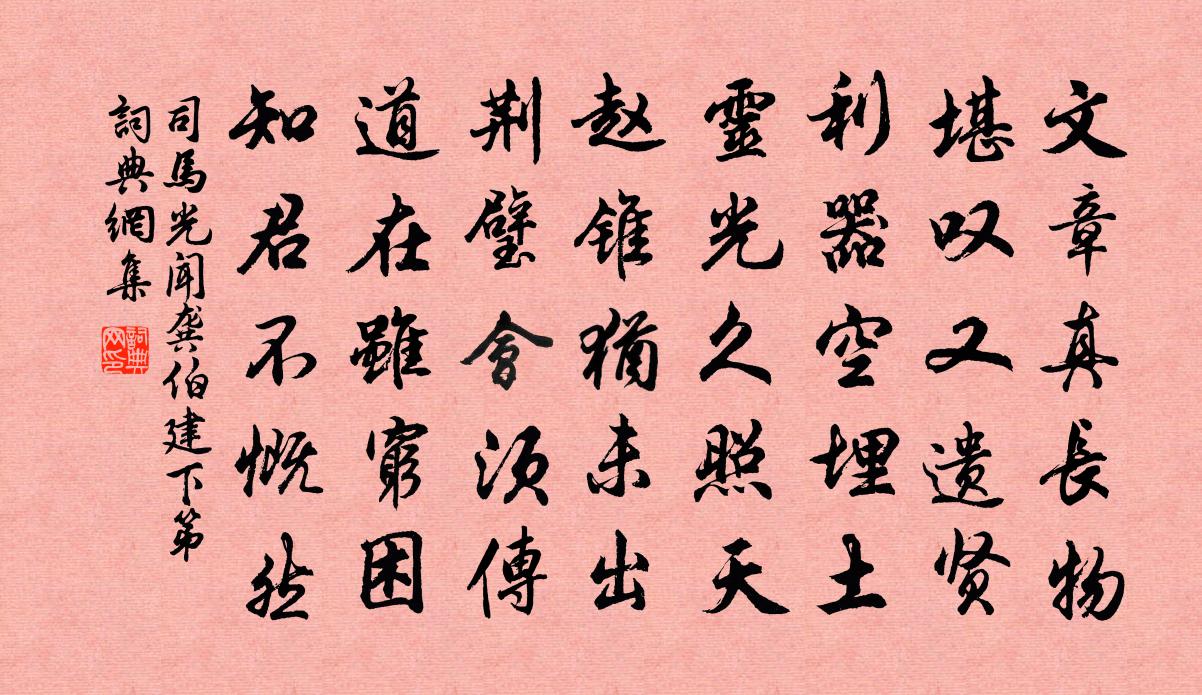 文章真長物
堪叹又遗贤
利器空埋土
靈光久照天
赵锥猶未出
荆璧會须傳
道在雖窮困
知君不慨然
司馬光聞龚伯建下第
詞典網集
詞典网印